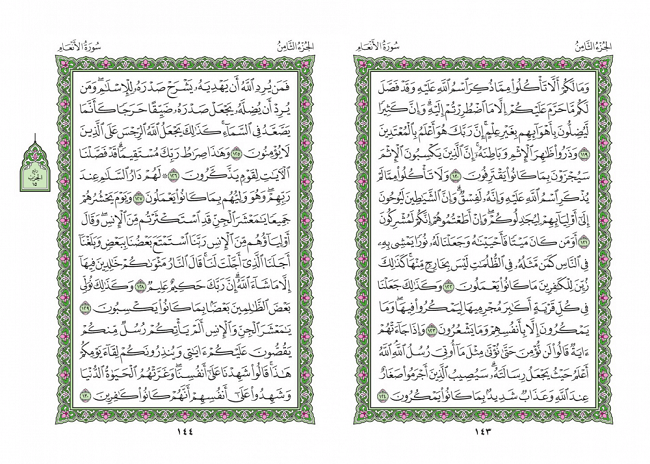 الجزء الثامن
سورة الأنعام
وَمَا لَكُمْ أَلَّا تَأْكُلُوا۟ مِمَّا ذُكِرَ ٱسْمُ ٱللَّهِ عَلَيْهِ وَقَدْ فَصَّلَ
لَكُم مَّا حَرَّمَ عَلَيْكُمْ إِلَّا مَا ٱضْطُرِرْتُمْ إِلَيْهِ ۗ وَإِنَّ كَثِيرًا
لَّيُضِلُّونَ بِأَهْوَآئِهِم بِغَيْرِ عِلْمٍ ۗ إِنَّ رَبَّكَ هُوَ أَعْلَمُ بِٱلْمُعْتَدِينَ
١١٩ وَذَرُوا۟ ظَـٰهِرَ ٱلْإِثْمِ وَبَاطِنَهُۥٓ ۚ إِنَّ ٱلَّذِينَ يَكْسِبُونَ ٱلْإِثْمَ
سَيُجْزَوْنَ بِمَا كَانُوا۟ يَقْتَرِفُونَ ١٢٠ وَلَا تَأْكُلُوا۟ مِمَّا لَمْ
يُذْكَرِ ٱسْمُ ٱللَّهِ عَلَيْهِ وَإِنَّهُۥ لَفِسْقٌ ۗ وَإِنَّ ٱلشَّيَـٰطِينَ لَيُوحُونَ
إِلَىٰٓ أَوْلِيَآئِهِمْ لِيُجَـٰدِلُوكُمْ ۖ وَإِنْ أَطَعْتُمُوهُمْ إِنَّكُمْ لَمُشْرِكُونَ
١٢١ أَوَمَن كَانَ مَيْتًا فَأَحْيَيْنَـٰهُ وَجَعَلْنَا لَهُۥ نُورًا يَمْشِى بِهِۦ
فِى ٱلنَّاسِ كَمَن مَّثَلُهُۥ فِى ٱلظُّلُمَـٰتِ لَيْسَ بِخَارِجٍ مِّنْهَا ۚ كَذَٰلِكَ
زُيِّنَ لِلْكَـٰفِرِينَ مَا كَانُوا۟ يَعْمَلُونَ ١٢٢ وَكَذَٰلِكَ جَعَلْنَا
فِى كُلِّ قَرْيَةٍ أَكَـٰبِرَ مُجْرِمِيهَا لِيَمْكُرُوا۟ فِيهَا ۖ وَمَا
يَمْكُرُونَ إِلَّا بِأَنفُسِهِمْ وَمَا يَشْعُرُونَ ١٢٣ وَإِذَا جَآءَتْهُمْ
ءَايَةٌ قَالُوا۟ لَن نُّؤْمِنَ حَتَّىٰ نُؤْتَىٰ مِثْلَ مَآ أُوتِىَ رُسُلُ ٱللَّهِ ۘ ٱللَّهُ
أَعْلَمُ حَيْثُ يَجْعَلُ رِسَالَتَهُۥ ۗ سَيُصِيبُ ٱلَّذِينَ أَجْرَمُوا۟ صَغَارٌ
عِندَ ٱللَّهِ وَعَذَابٌ شَدِيدٌۢ بِمَا كَانُوا۟ يَمْكُرُونَ ١٢٤
١٤٣
الجزء الثامن
سورة الأنعام
فَمَن يُرِدِ ٱللَّهُ أَن يَهْدِيَهُۥ يَشْرَحْ صَدْرَهُۥ لِلْإِسْلَـٰمِ ۖ وَمَن
يُرِدْ أَن يُضِلَّهُۥ يَجْعَلْ صَدْرَهُۥ ضَيِّقًا حَرَجًا كَأَنَّمَا
يَصَّعَّدُ فِى ٱلسَّمَآءِ ۚ كَذَٰلِكَ يَجْعَلُ ٱللَّهُ ٱلرِّجْسَ عَلَى ٱلَّذِينَ
لَا يُؤْمِنُونَ ١٢٥ وَهَـٰذَا صِرَٰطُ رَبِّكَ مُسْتَقِيمًا ۗ قَدْ فَصَّلْنَا
ٱلْـَٔايَـٰتِ لِقَوْمٍ يَذَّكَّرُونَ ١٢٦ لَهُمْ دَارُ ٱلسَّلَـٰمِ عِندَ
رَبِّهِمْ ۖ وَهُوَ وَلِيُّهُم بِمَا كَانُوا۟ يَعْمَلُونَ ١٢٧ وَيَوْمَ يَحْشُرُهُمْ
جَمِيعًا يَـٰمَعْشَرَ ٱلْجِنِّ قَدِ ٱسْتَكْثَرْتُم مِّنَ ٱلْإِنسِ ۖ وَقَالَ
أَوْلِيَآؤُهُم مِّنَ ٱلْإِنسِ رَبَّنَا ٱسْتَمْتَعَ بَعْضُنَا بِبَعْضٍ وَبَلَغْنَآ
أَجَلَنَا ٱلَّذِىٓ أَجَّلْتَ لَنَا ۚ قَالَ ٱلنَّارُ مَثْوَىٰكُمْ خَـٰلِدِينَ فِيهَآ
إِلَّا مَا شَآءَ ٱللَّهُ ۗ إِنَّ رَبَّكَ حَكِيمٌ عَلِيمٌ ١٢٨ وَكَذَٰلِكَ نُوَلِّى
بَعْضَ ٱلظَّـٰلِمِينَ بَعْضًۢا بِمَا كَانُوا۟ يَكْسِبُونَ ١٢٩
يَـٰمَعْشَرَ ٱلْجِنِّ وَٱلْإِنسِ أَلَمْ يَأْتِكُمْ رُسُلٌ مِّنكُمْ
يَقُصُّونَ عَلَيْكُمْ ءَايَـٰتِى وَيُنذِرُونَكُمْ لِقَآءَ يَوْمِكُمْ
هَـٰذَا ۚ قَالُوا۟ شَهِدْنَا عَلَىٰٓ أَنفُسِنَا ۖ وَغَرَّتْهُمُ ٱلْحَيَوٰةُ ٱلدُّنْيَا
وَشَهِدُوا۟ عَلَىٰٓ أَنفُسِهِمْ أَنَّهُمْ كَانُوا۟ كَـٰفِرِينَ ١٣٠
١٤٤
الحزب
١٥